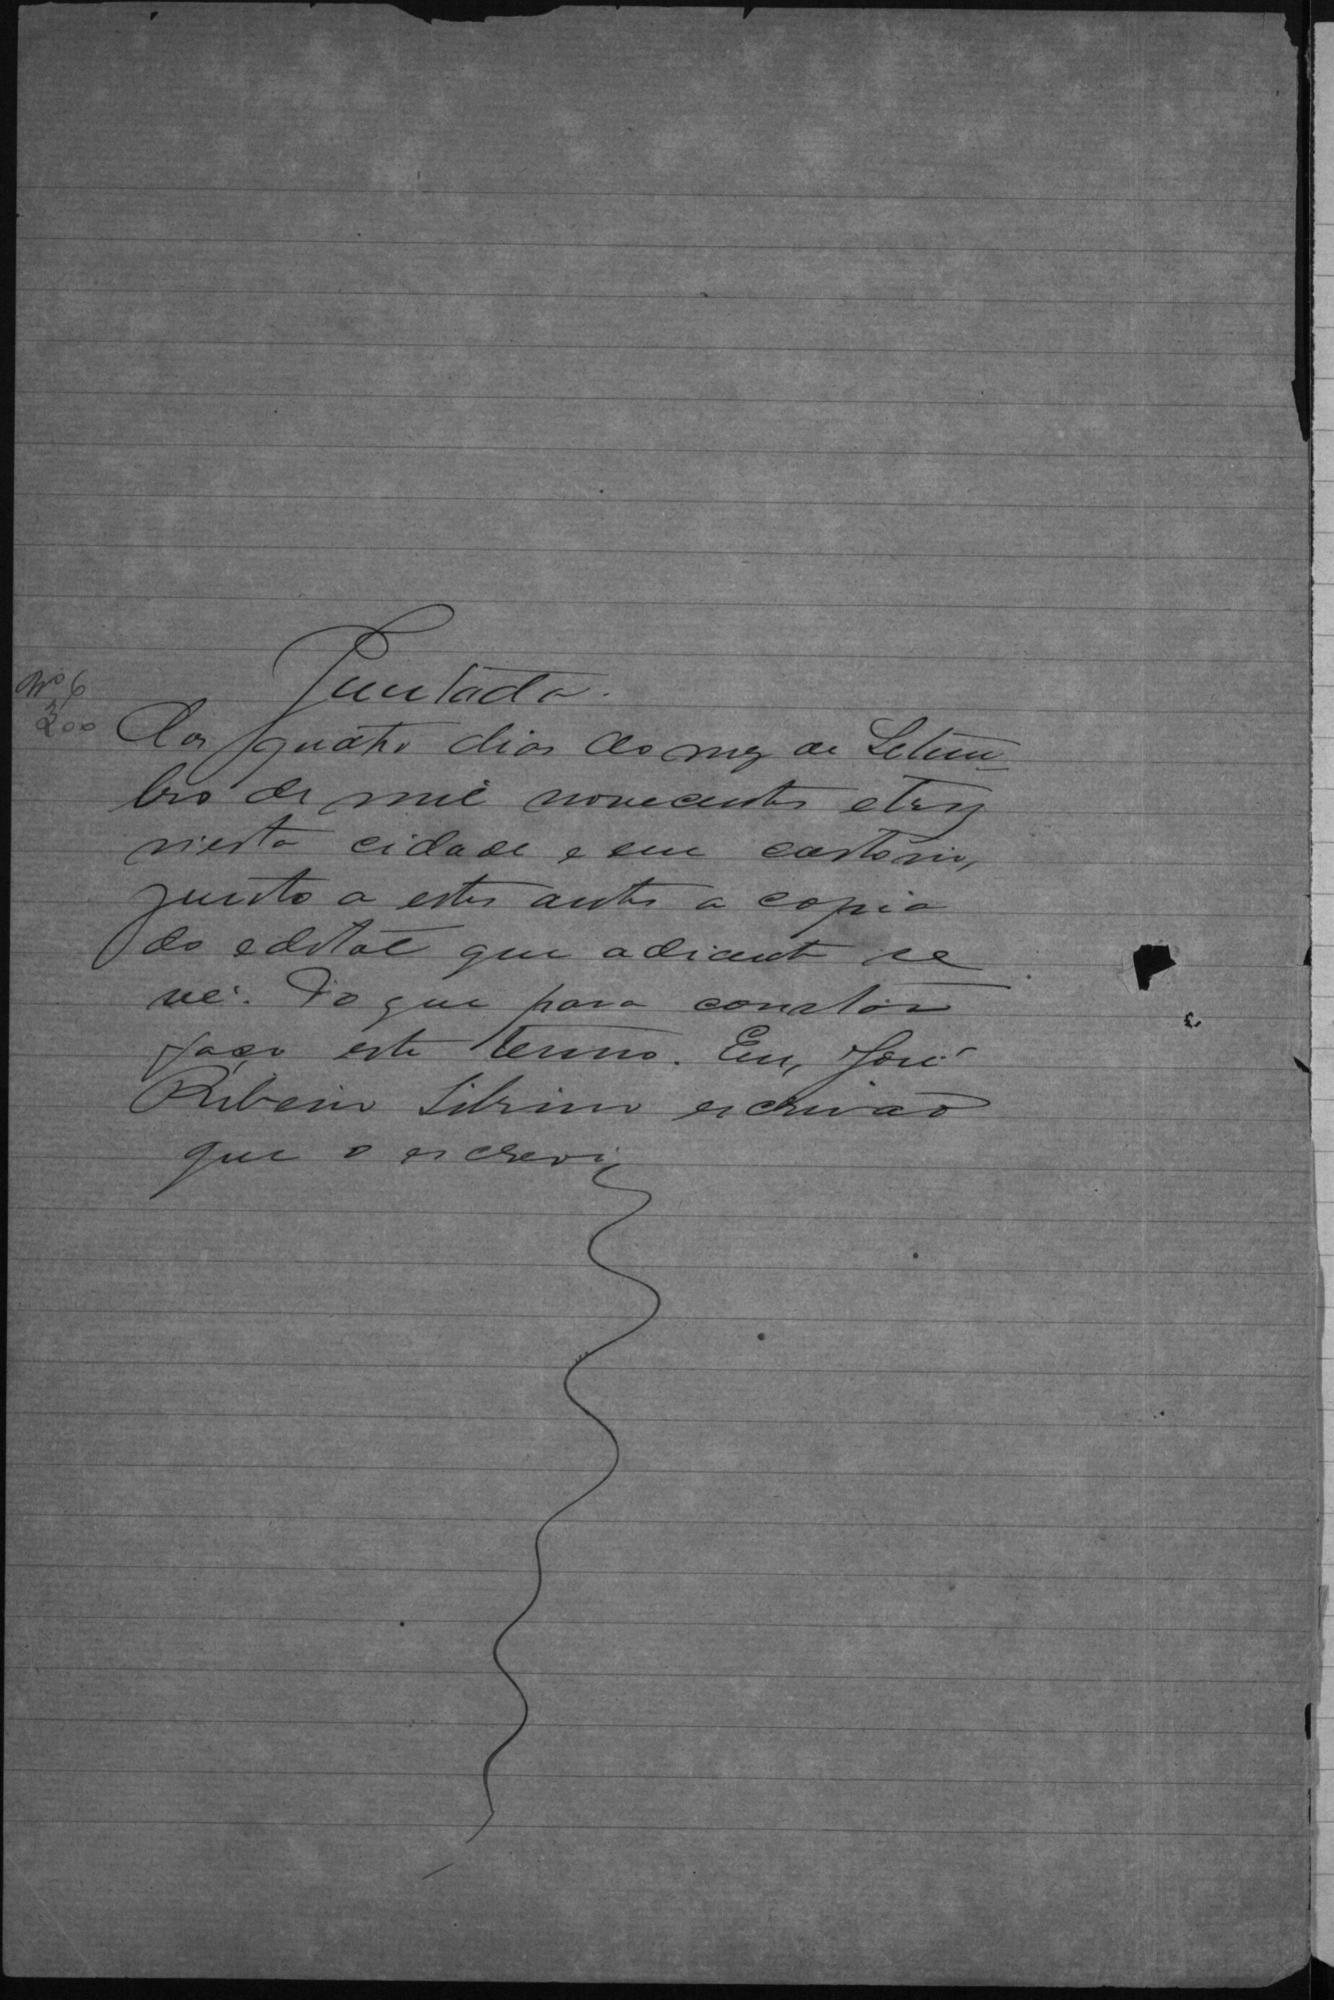 Juntada.
Nº 6
300
Aos quatro dias do mez de Setem-
bro de mil novecentos e trez
nesta cidade e em cartorio,
junto a estes autos a copia
do edital que adiante se
vê. Do que para constar
faço este termo. Eu, José
Ribeiro escrivão
que o escrevi